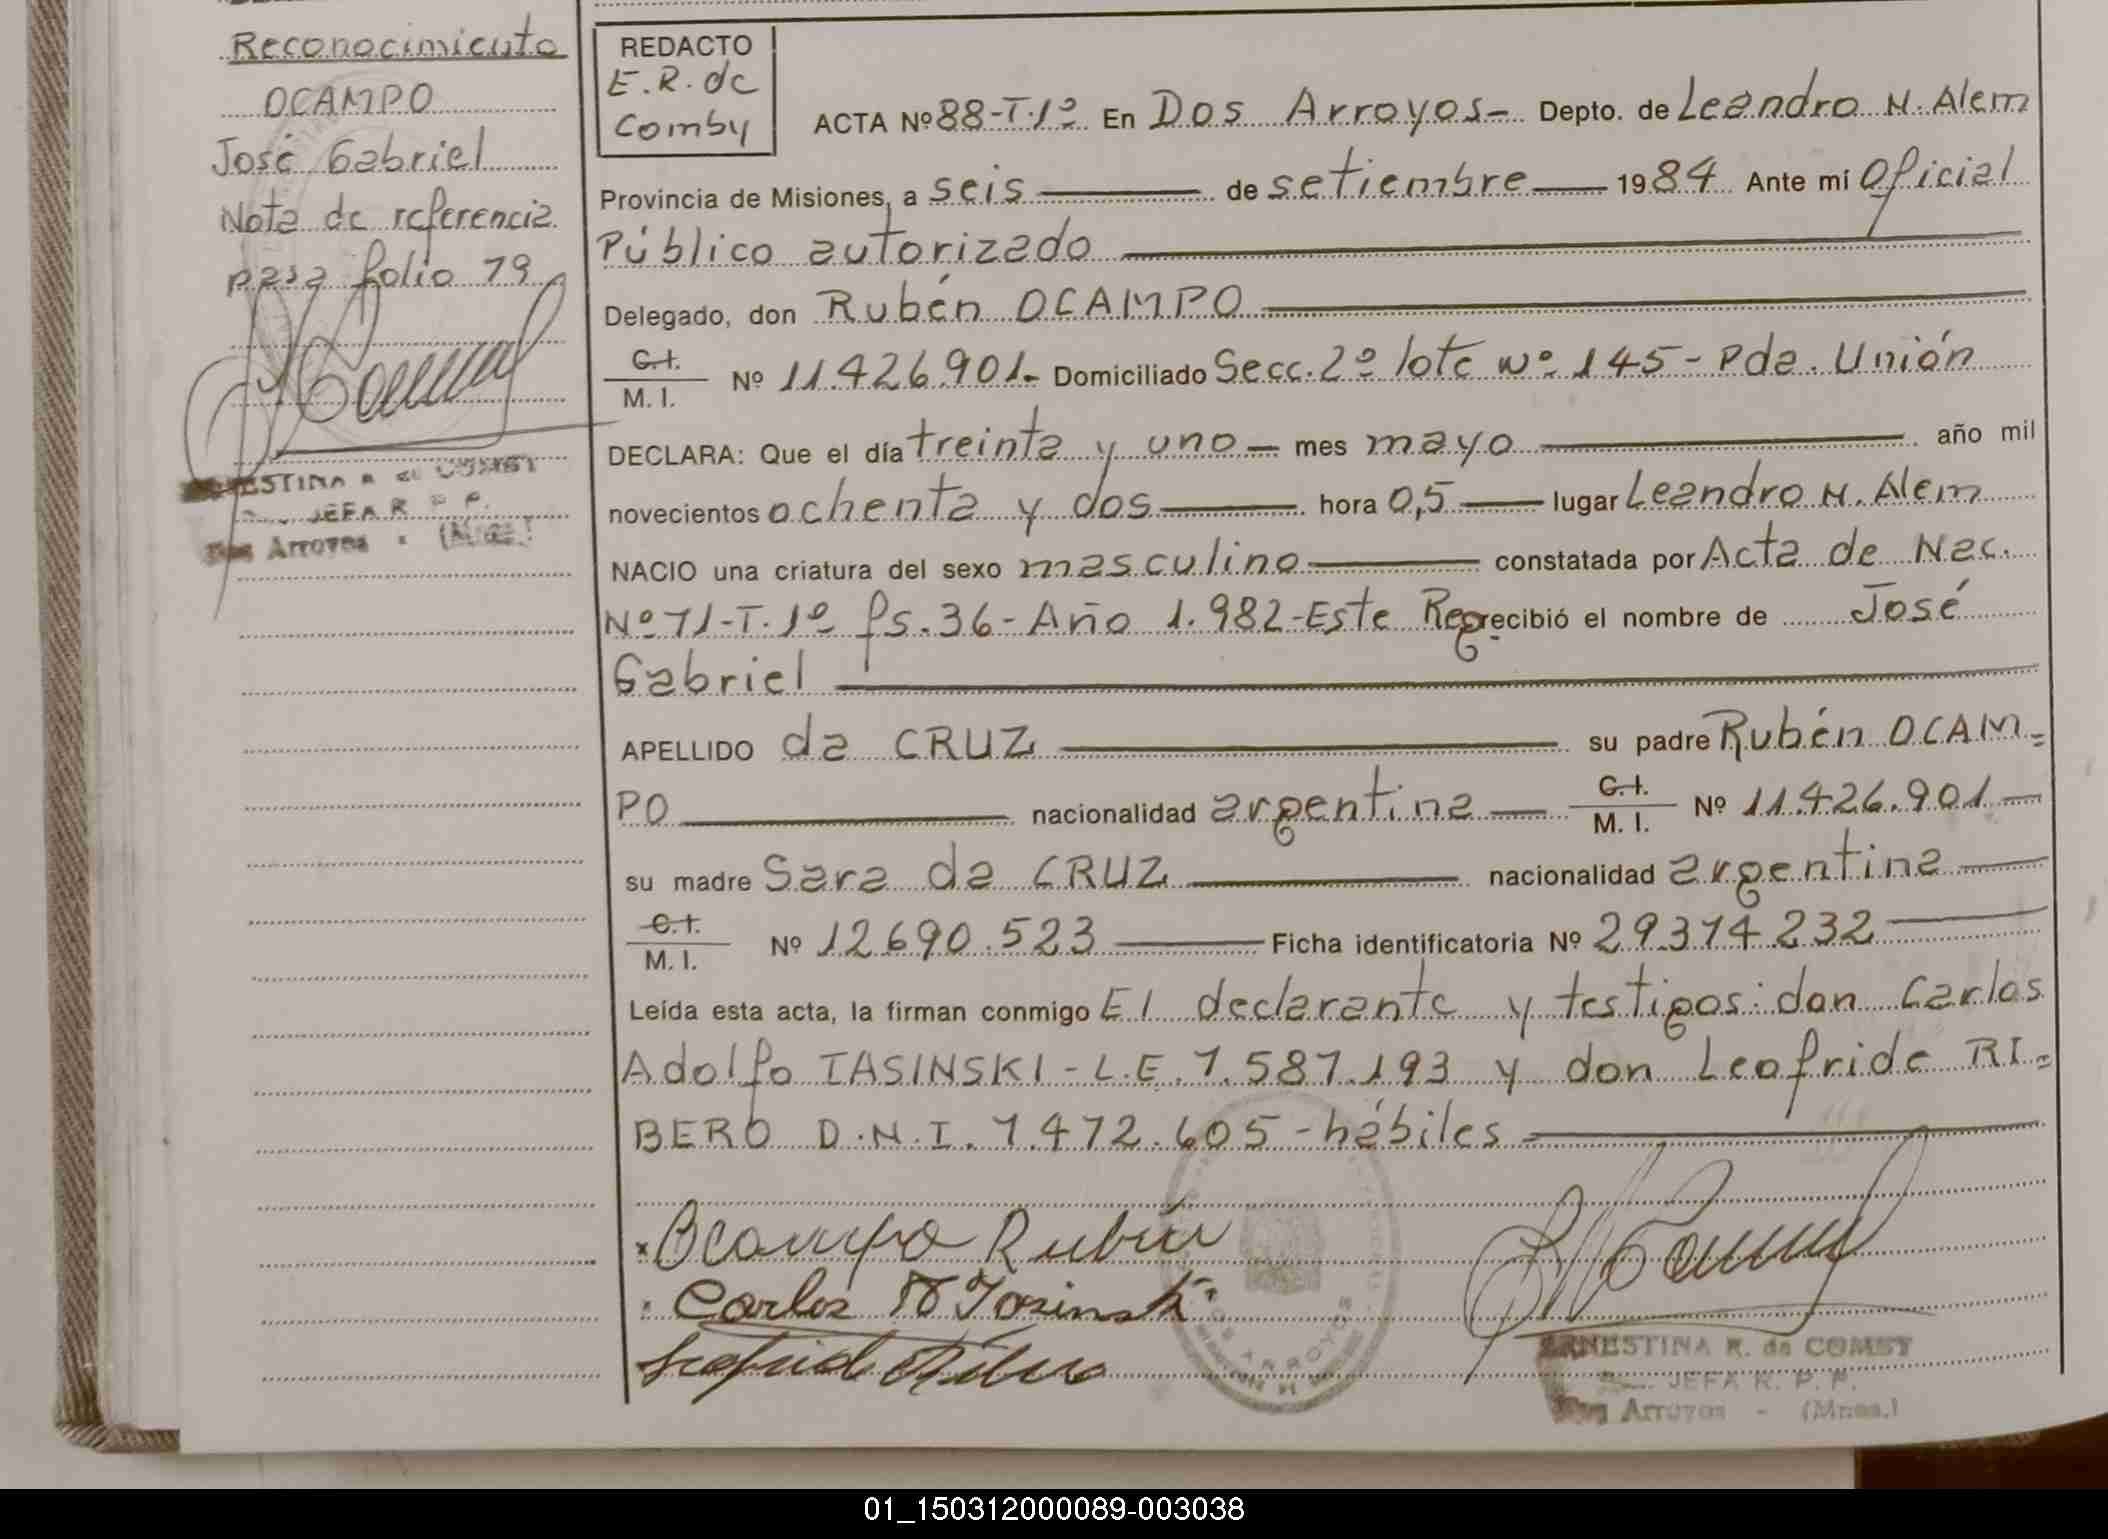 Reconocimiento
OCAMPO
José Gabriel
Nota de referencia
pasa folio 79
ESTINA R de COMBY
JEFA R. P. P.
Dos Arroyos - (Mnes.)
REDACTO
E.R. de
Comby
ACTA Nº 88-T.1º En Dos Arroyos- Depto. de Leandro N. Alem
Provincia de Misiones, a seis de setiembre 1984 Ante mí Oficial
Público autorizado
Delegado, don Rubén OCAMPO
C.I.
M. I. Nº 11.426.901.- Domiciliado Secc. 2º lote Nº 145 - Pda. Unión
DECLARA: Que el día treinta y uno - mes mayo año mil
novecientos ochenta y dos hora 0,5 lugar Leandro N. Alem
NACIO una criatura del sexo masculino constatada por Acta de Nac.
Nº 71-T.1º fs. 36 - Año 1.982-Este Reg recibió el nombre de José
Gabriel
APELLIDO da CRUZ su padre Rubén OCAM=
PO nacionalidad argentina C.I.
M. I. Nº 11.426.901
su madre Sara da CRUZ nacionalidad argentina
C.I.
M. I. Nº 12.690.523 Ficha identificatoria Nº 29.374.232
Leída esta acta, la firman conmigo El declarante y testigos: don Carlos
Adolfo IASINSKI - L.E. 7.587.193 y don Leofride RI=
BERO D.N.I. 7.472.605 - hábiles
Ocampo Rubén
Carlos A Iasinski
Leofride Ribero
DOS ARROYOS
ERNESTINA R. de COMBY
JEFA R. P. P.
Dos Arroyos - (Mnes.)
01_150312000089-003038